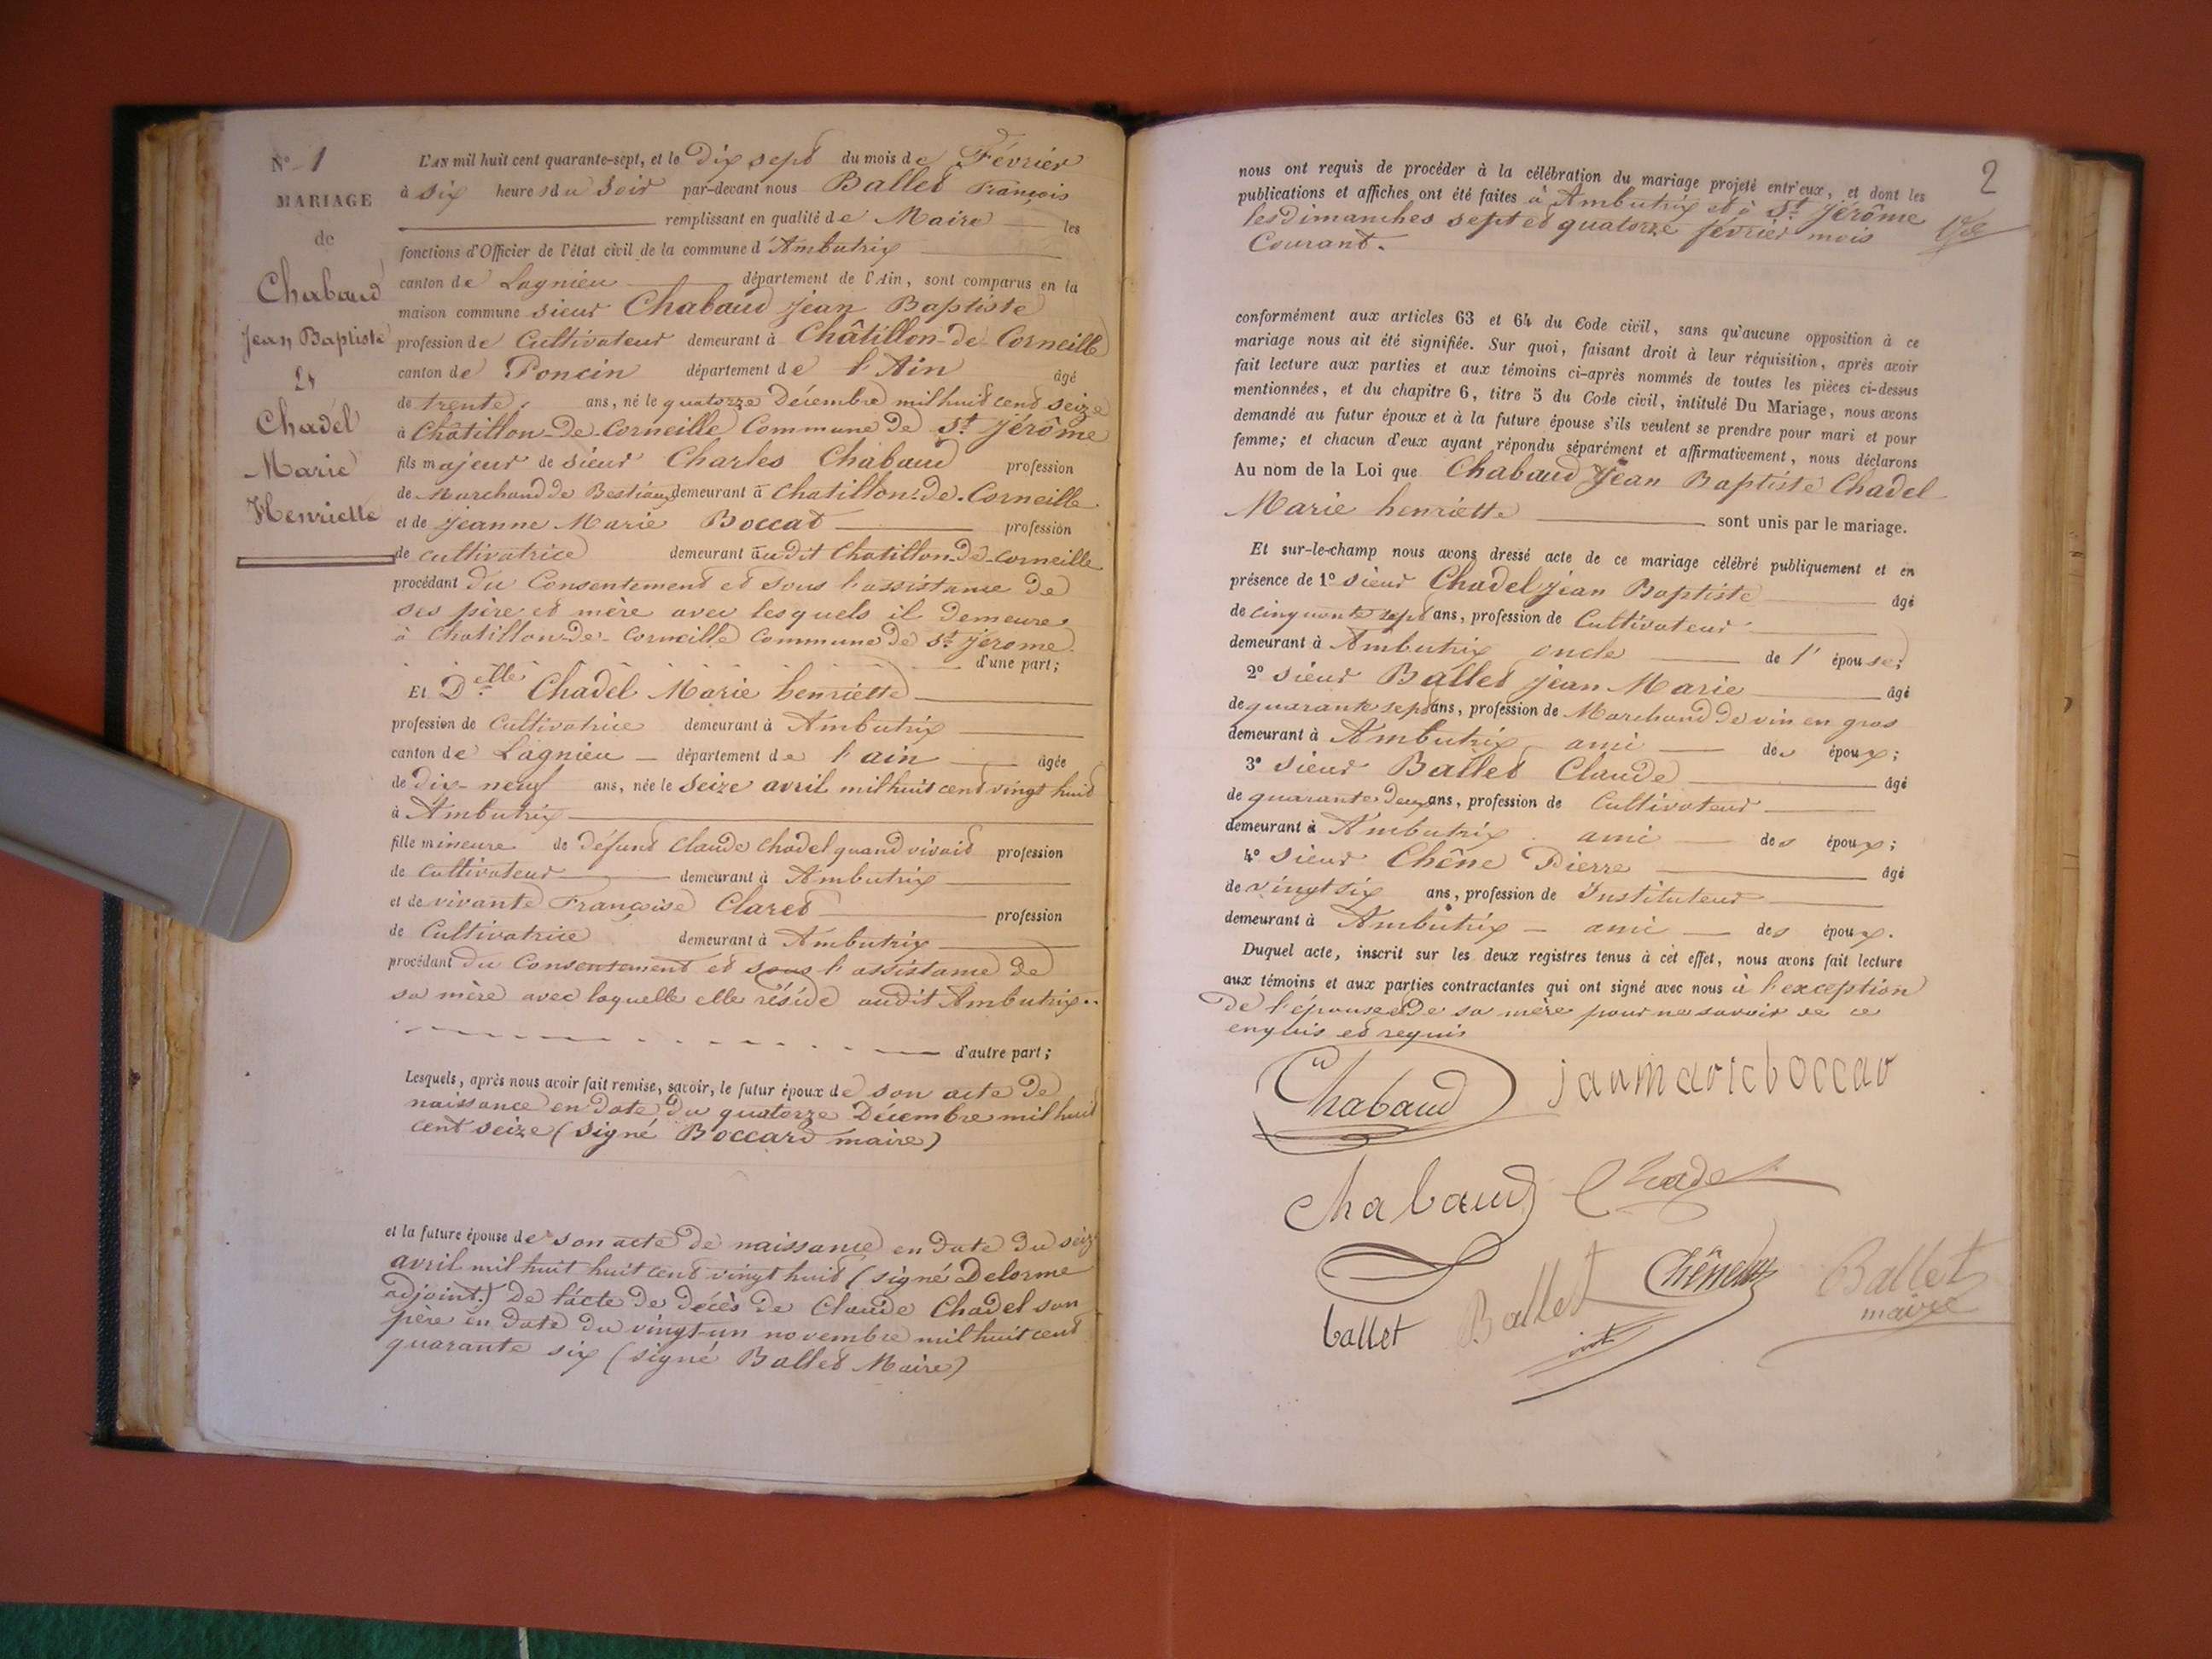 N° 1
MARIAGE
de
Chabaud
Jean Baptiste
et
Chadel
Marie
Henriette
L'AN mil huit cent quarante-sept, et le Dix sept du mois de Février
à six heures du Soir par-devant nous Ballet François
remplissant en qualité de Maire les
fonctions d'Officier de l'état civil de la commune d'Ambutrix
canton de Lagnieu département de l'Ain, sont comparus en la
maison commune sieur Chabaud Jean Baptiste
profession de Cultivateur demeurant à Châtillon-de-Corneille
canton de Poncin département de l'Ain âgé
de trente ans, né le quatorze Décembre mil huit cent seize
à Châtillon-De-Corneille Commune De St Jérôme
fils majeur de sieur Charles Chabaud profession
de Marchand De Bestiaux demeurant à Chatillon-De-Corneille
et de Jeanne Marie Boccat profession
de cultivatrice demeurant audit Chatillon-De-Corneille
procédant Du Consentement et sous l'assistance De
ses père et mère avec lesquels il Demeure
à Chatillon-De-Corneille Commune De St Jérome
d'une part;
Et Delle Chadel Marie henriette
profession de Cultivatrice demeurant à Ambutrix
canton de Lagnieu département de l'ain âgée
de dix-neuf ans, née le Seize avril mil huit cent vingt huit
à Ambutrix
fille mineure de défunt Claude Chadel quand vivait profession
de Cultivateur demeurant à Ambutrix
et de vivante Françoise Claret profession
de Cultivatrice demeurant à Ambutrix
procédant Du Consentement et sous l'assistance De
sa mère avec laquelle elle réside audit Ambutrix
d'autre part;
Lesquels, après nous avoir fait remise, savoir, le futur époux de son acte De
naissance en Date Du quatorze Décembre mil huit
cent seize (signé Boccard maire)
et la future épouse de son acte De naissance en Date Du seize
avril mil huit huit cent vingt huit (signé Delorme
adjoint) De l'acte De Décès De Claude Chadel son
père en Date Du vingt-un novembre mil huit cent
quarante six (signé Ballet Maire)
2
nous ont requis de procéder à la célébration du mariage projeté entr'eux, et dont les
publications et affiches ont été faites à Ambutrix et à St Jérôme
les dimanches sept et quatorze février mois
Courant.
conformément aux articles 63 et 64 du Code civil, sans qu'aucune opposition à ce
mariage nous ait été signifiée. Sur quoi, faisant droit à leur réquisition, après avoir
fait lecture aux parties et aux témoins ci-après nommés de toutes les pièces ci-dessus
mentionnées, et du chapitre 6, titre 5 du Code civil, intitulé Du Mariage, nous avons
demandé au futur époux et à la future épouse s'ils veulent se prendre pour mari et pour
femme; et chacun d'eux ayant répondu séparément et affirmativement, nous déclarons
Au nom de la Loi que Chabaud Jean Baptiste Chadel
Marie henriette sont unis par le mariage.
Et sur-le-champ nous avons dressé acte de ce mariage célébré publiquement et en
présence de 1° sieur Chadel Jean Baptiste âgé
de cinquante sept ans, profession de Cultivateur
demeurant à Ambutrix oncle de l'épouse;
2° sieur Ballet Jean Marie âgé
de quarante sept ans, profession de Marchand De vin en gros
demeurant à Ambutrix ami des époux;
3° sieur Ballet Claude âgé
de quarante deux ans, profession de Cultivateur
demeurant à Ambutrix ami des époux;
4° sieur Chêne Pierre âgé
de vingt six ans, profession de Instituteur
demeurant à Ambutrix ami des époux.
Duquel acte, inscrit sur les deux registres tenus à cet effet, nous avons fait lecture
aux témoins et aux parties contractantes qui ont signé avec nous à l'exception
De l'épouse et De sa mère pour ne savoir de ce
enquis et requis
Chabaud janmarieboccat
Chabaud Chadel
ballet Ballet Chêne Ballet
maire